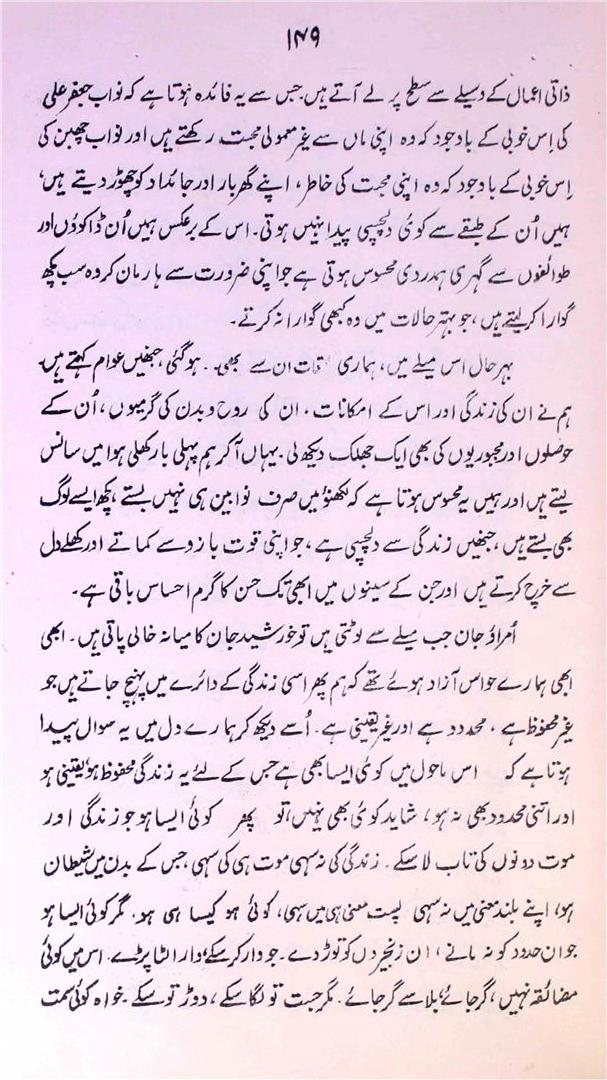 ۱۴۹
ذاتی اعمال کے وسیلے سے سطح پر لے آتے ہیں. جس سے یہ فائدہ ہوتا ہے کہ نواب جعفر علی
کی اِس خوبی کے باوجود کہ وہ اپنی ماں سے غیر معمولی محبت رکھتے ہیں اور نواب چھبن کی
اِس خوبی کے باوجود کہ وہ اپنی محبت کی خاطر، اپنے گھر بار اور جائداد کو چھوڑ دیتے ہیں،
ہمیں اُن کے طبقے سے کوئی دلچسپی پیدا نہیں ہوتی۔ اس کے برعکس ہمیں اُن ڈاکوؤں اور
طوائفوں سے گہری ہمدردی محسوس ہوتی ہے جو اپنی ضرورت سے ہار مان کر وہ سب کچھ
گوارا کر لیتے ہیں، جو بہتر حالات میں وہ کبھی گوارا نہ کرتے۔
بہر حال اس میلے میں، ہماری ان سے بھی ہو گئی، جنھیں عوام کہتے ہیں۔
ہم نے ان کی زندگی اور اس کے امکانات، ان کی روح و بدن کی گرمیوں، اُن کے
حوصلوں اور مجبوریوں کی بھی ایک جھلک دیکھ لی۔ یہاں آ کر ہم پہلی بار کھلی ہوا میں سانس
لیتے ہیں اور ہمیں یہ محسوس ہوتا ہے کہ لکھنؤ میں صرف نوابین ہی نہیں بستے، کچھ ایسے لوگ
بھی بستے ہیں، جنھیں زندگی سے دلچسپی ہے، جو اپنی قوت بازو سے کماتے اور کھلے دل
سے خرچ کرتے ہیں اور جن کے سینوں میں ابھی تک حسن کا گرم احساس باقی ہے۔
اُمراؤ جان جب میلے سے لوٹتی ہیں تو خورشید جان کا میانہ خالی پاتی ہیں۔ ابھی
ابھی ہمارے حواس آزاد ہوئے تھے کہ ہم پھر اسی زندگی کے دائرے میں پہنچ جاتے ہیں جو
غیر محفوظ ہے، محدود ہے اور غیر یقینی ہے۔ اُسے دیکھ کر ہمارے دل میں یہ سوال پیدا
ہوتا ہے کہ اس ماحول میں کوئی ایسا بھی ہے جس کے لئے یہ زندگی محفوظ ہو، یقینی ہو
اور اتنی محدود بھی نہ ہو، شاید کوئی بھی نہیں، تو پھر کوئی ایسا ہو جو زندگی اور
موت دونوں کی تاب لا سکے۔ زندگی کی نہ سہی موت ہی کی سہی، جس کے بدن میں شیطان
ہو، اپنے بلند معنی میں نہ سہی پست معنی ہی میں سہی، کوئی ہو کیسا ہی ہو۔ مگر کوئی ایسا ہو
جو ان حدود کو نہ مانے، ان زنجیروں کو توڑ دے۔ جو وار کر سکے، وار الٹا پڑے۔ اس میں کوئی
مضائقہ نہیں، گر جائے، بلا سے گر جائے۔ مگر جست تو لگا سکے، دوڑ تو سکے۔ خواہ کوئی سمت